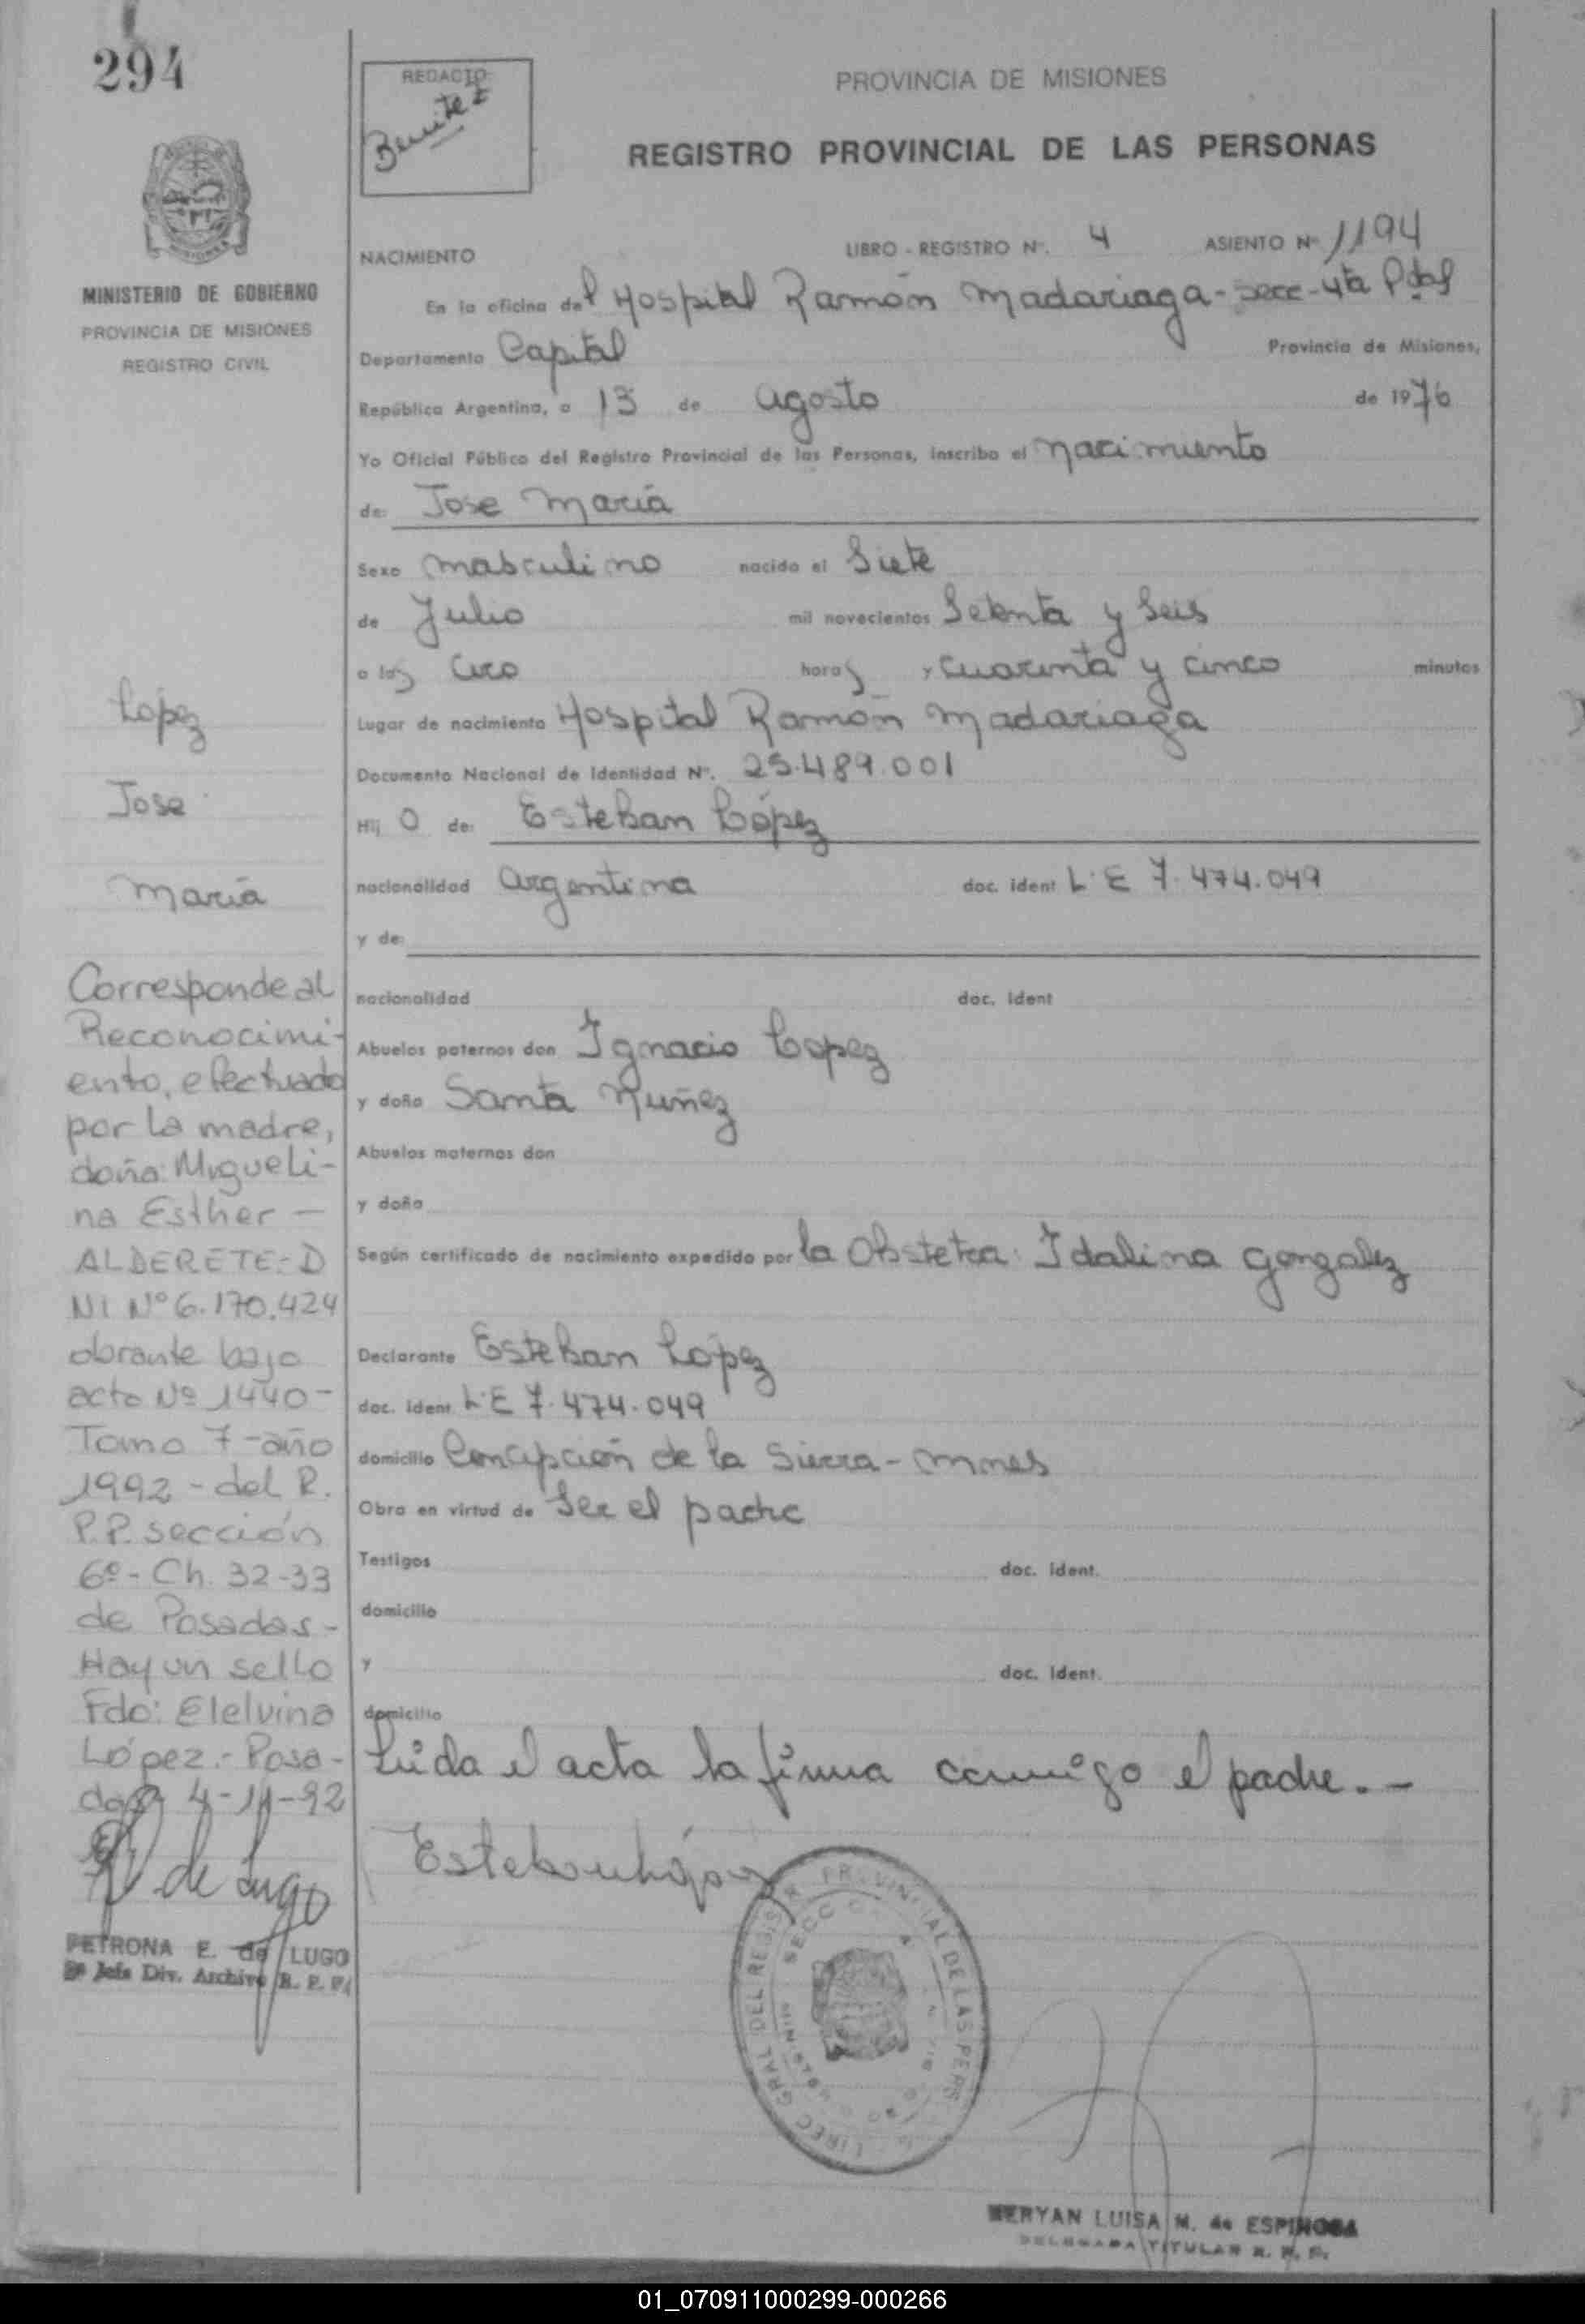 294
REDACTO
Benitez
PROVINCIA DE MISIONES
REGISTRO PROVINCIAL DE LAS PERSONAS
MINISTERIO DE GOBIERNO
PROVINCIA DE MISIONES
REGISTRO CIVIL
NACIMIENTO LIBRO - REGISTRO Nº. 4 ASIENTO Nº 1194
En la oficina del Hospital Ramón Madariaga - secc - 4ta Pdas
Departamento Capital Provincia de Misiones,
República Argentina, a 13 de agosto de 1976
Yo Oficial Público del Registro Provincial de las Personas, inscribo el nacimiento
de: Jose María
Sexo masculino nacido el Siete
de Julio mil novecientos Setenta y Seis
a las Cero horas y cuarenta y cinco minutos
Lugar de nacimiento Hospital Ramón Madariaga
Documento Nacional de Identidad Nº. 25.489.001
Hij o de: Esteban López
nacionalidad argentina doc. ident L.E 7.474.049
y de:
nacionalidad doc. ident
Abuelos paternos don Ignacio Lopez
y doña Santa Nuñez
Abuelos maternos don
y doña
Según certificado de nacimiento expedido por la Obstetra: Idalina Gonzalez
Declarante Esteban López
doc. ident L.E 7.474.049
domicilio Concepción de la Sierra - Mnes
Obra en virtud de Ser el padre
Testigos doc. ident.
domicilio
y doc. ident.
domicilio
Leida el acta la firma conmigo el padre. -
Esteban López
López
Jose
María
Corresponde al
Reconocimi-
ento, efectuado
por la madre,
doña: Migueli-
na Esther -
ALDERETE - D
NI Nº 6.170.424
obrante bajo
acta Nº 1440 -
Tomo 7 - año
1992 - del R.
P.P. sección
6º - Ch. 32-33
de Posadas -
Hay un sello
Fdo: Elelvina
López. - Posa-
das 4-11-92
de Lugo
PETRONA E. de LUGO
2º Jefe Div. Archivo R. P. P.
DIREC GRAL DEL REGISTR PROVINCIAL DE LAS PERS
SECC
MERYAN LUISA M. de ESPINOSA
DELEGADA TITULAR R. P. P.
01_070911000299-000266